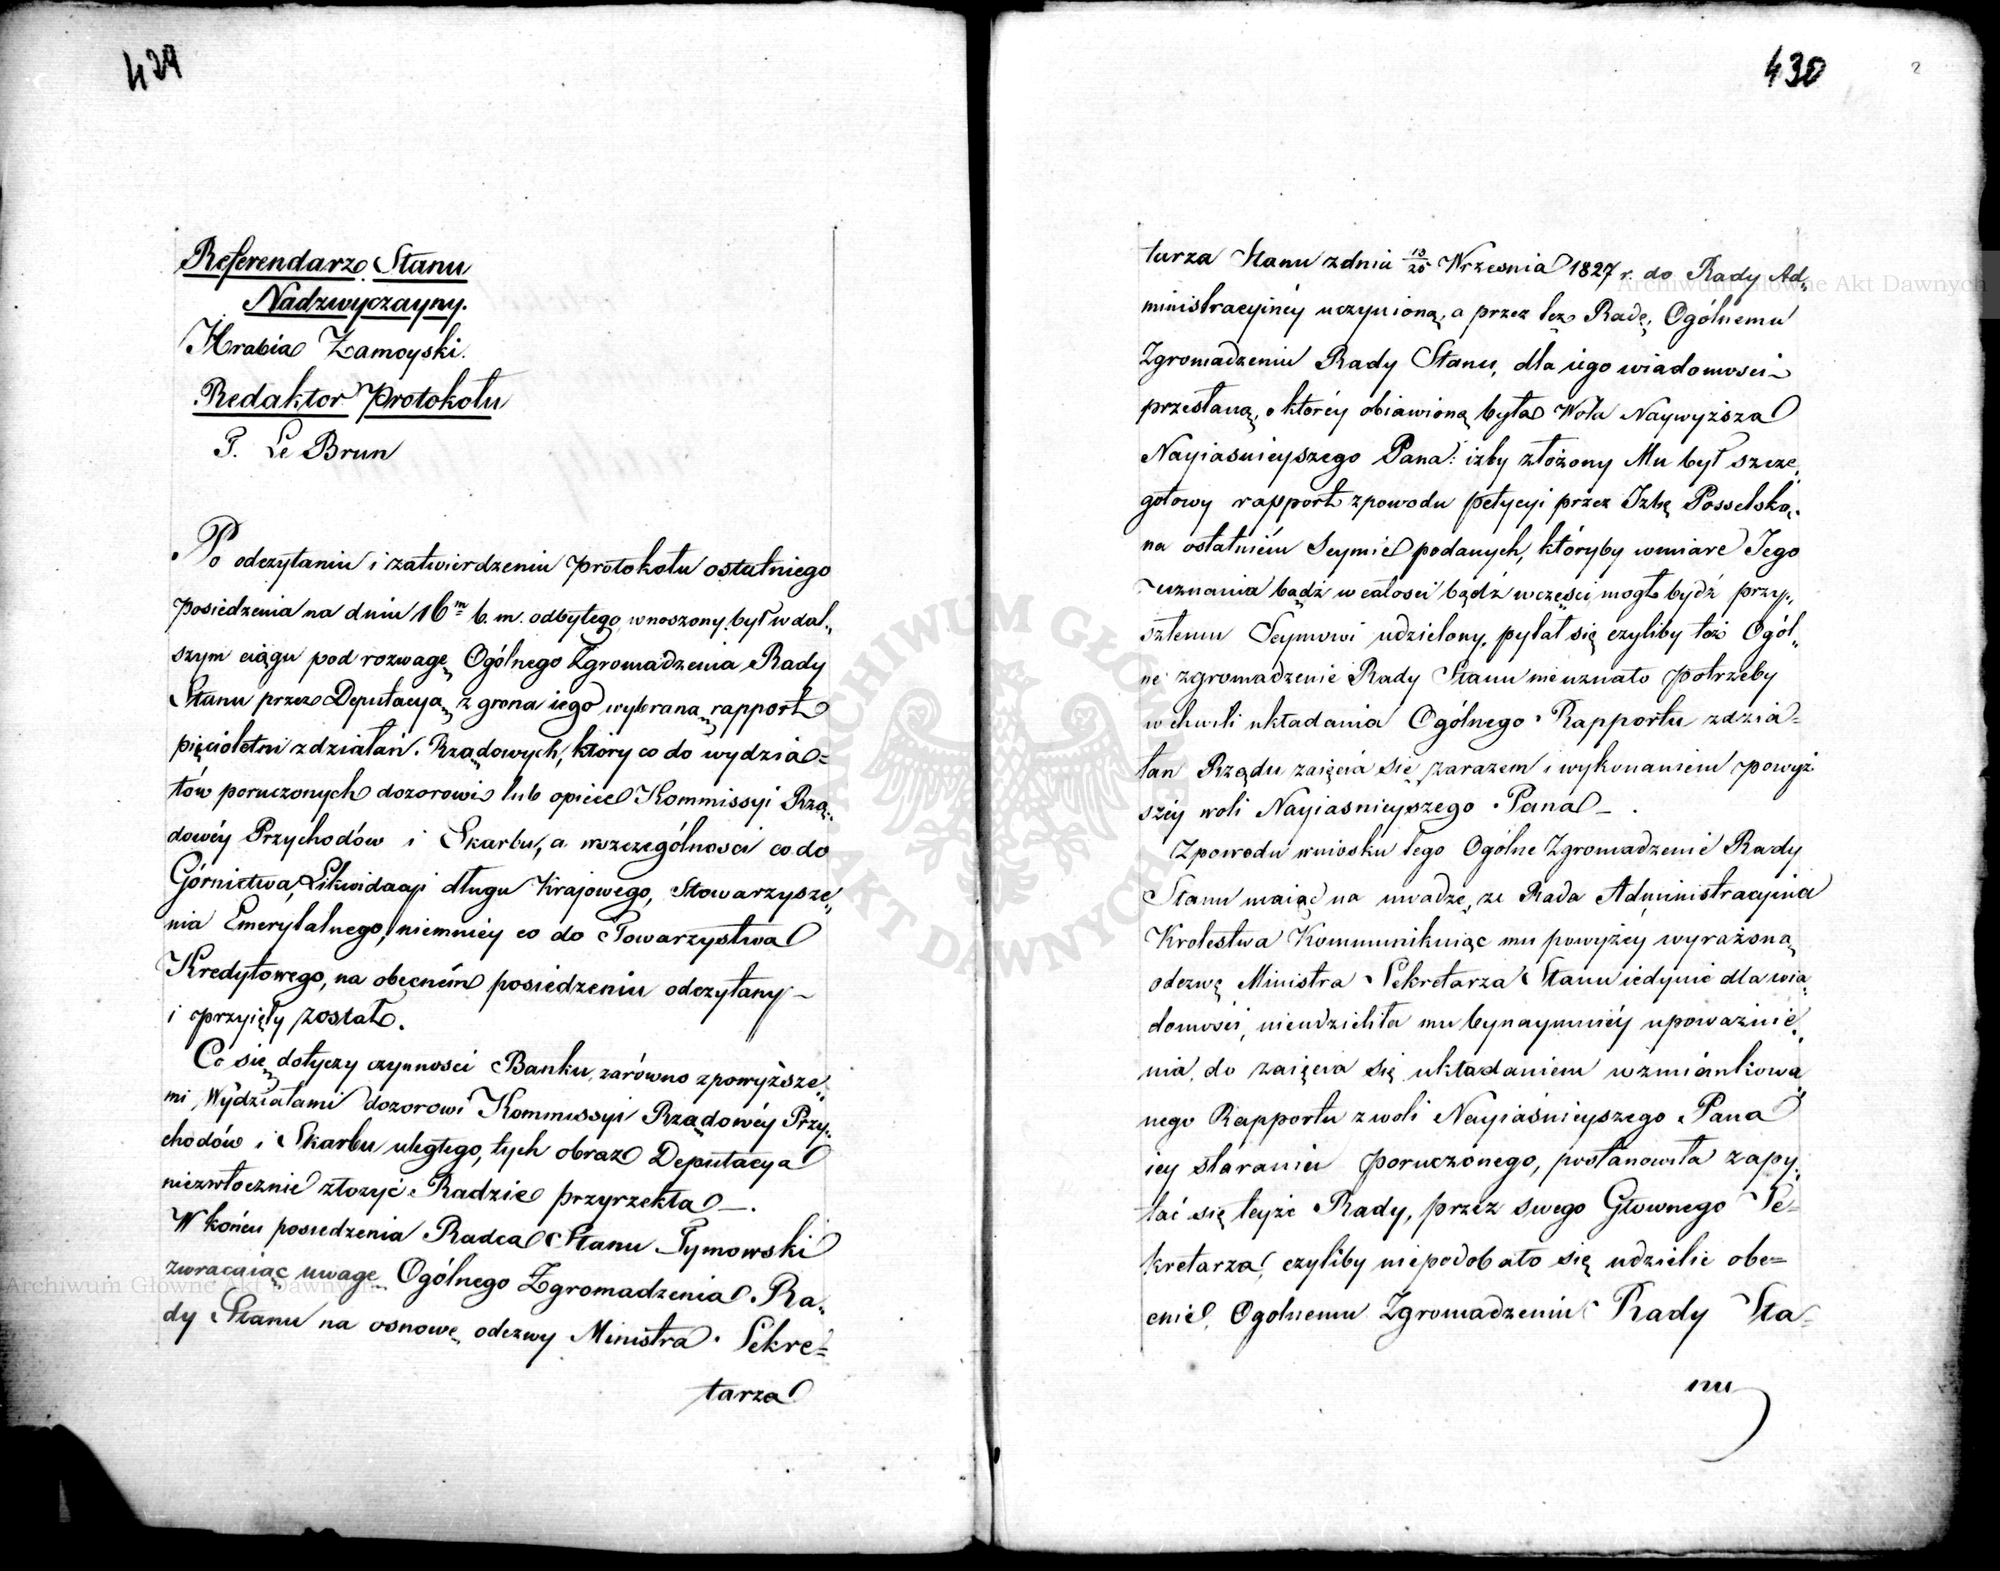 429
Referendarz Stanu
Nadzwyczayny.
Hrabia Zamoyski.
Redaktor Protokołu
P. Le Brun
Po odczytaniu i zatwierdzeniu protokołu ostatniego
posiedzenia na dniu 16m b. m. odbytego, wnoszony był w dal„
szym ciągu pod rozwagę Ogólnego Zgromadzenia Rady
Stanu przez Deputacyą z grona iego wybraną rapport
pięcioletni z działań Rządowych, który co do wydzia=
łów poruczonych dozorowi lub opiece Kommissyi Rzą„
dowéy Przychodów i Skarbu, a wszczególnosci co do
Górnictwa, Likwidacyi długu Krajowego, Stowarzysze„
nia Emerytalnego, niemniey co do Towarzystwa
Kredytowego, na obecném posiedzeniu odczytany –
i przyięty został.
Co się dotyczy czynnosci Banku, zarówno z powyższe„
mi Wydziałami dozorowi Kommissyi Rządowéy Przy„
chodów i Skarbu uległego, tych obraz Deputacya
niezwłocznie złożyć Radzie przyrzekła –.
W końcu posiedzenia Radca Stanu Tymowski
zwracaiąc uwagę Ogólnego Zgromadzenia Ra„
dy Stanu na osnowę odezwy Ministra Sekre=
tarza
430
2
tarza Stanu z dnia 13/25 Września 1827 r. do Rady Ad„
ministracyinéy uczynioną, a przez też Radę, Ogólnemu
Zgromadzeniu Rady Stanu, dla iego wiadomosci –
przesłaną, o któréy obiawioną była Wola Naywyższa
Nayiasnieyszego Pana: iżby złożony Mu był szcze„
gołowy rapport z powodu petycyi przez Izbę Posselską
na ostatniém Seymie podanych, któryby w miarę Jego
uznania bądź w całosci bądź w częsci mogł bydź przy„
szłemu Seymowi udzielony, pytał się czyliby toż Ogól„
ne zgromadzenie Rady Stanu nie uznało potrzeby
w chwili układania Ogólnego Rapportu z dzia=
łan Rządu zaięcia się zarazem i wykonaniem powyż
széy woli Nayiasnieyszego Pana –.
Z powodu wniosku tego Ogólne Zgromadzenie Rady
Stanu maiąc na uwadze, że Rada Administracyina
Krolestwa Kommunikuiąc mu powyżey wyrażoną
odezwę Ministra Sekretarza Stanu iedynie dla wia„
domosci, nieudzieliła mu bynaymniéy upoważnie„
nia, do zaięcia się układaniem wzmiankowa„
nego Rapportu z woli Nayiaśnieyszego Pana
iey staraniu poruczonego, postanowiła zapy„
tać się teyże Rady, przez swego Głownego Se=
kretarza, czyliby niepodobało się udzielic obe=
cnie Ogolnemu Zgromadzeniu Rady Sta=
nu
Archiwum Główne Akt Dawnych
Archiwum Główne Akt Dawnych
ARCHIWUM GŁÓWNE AKT DAWNYCH